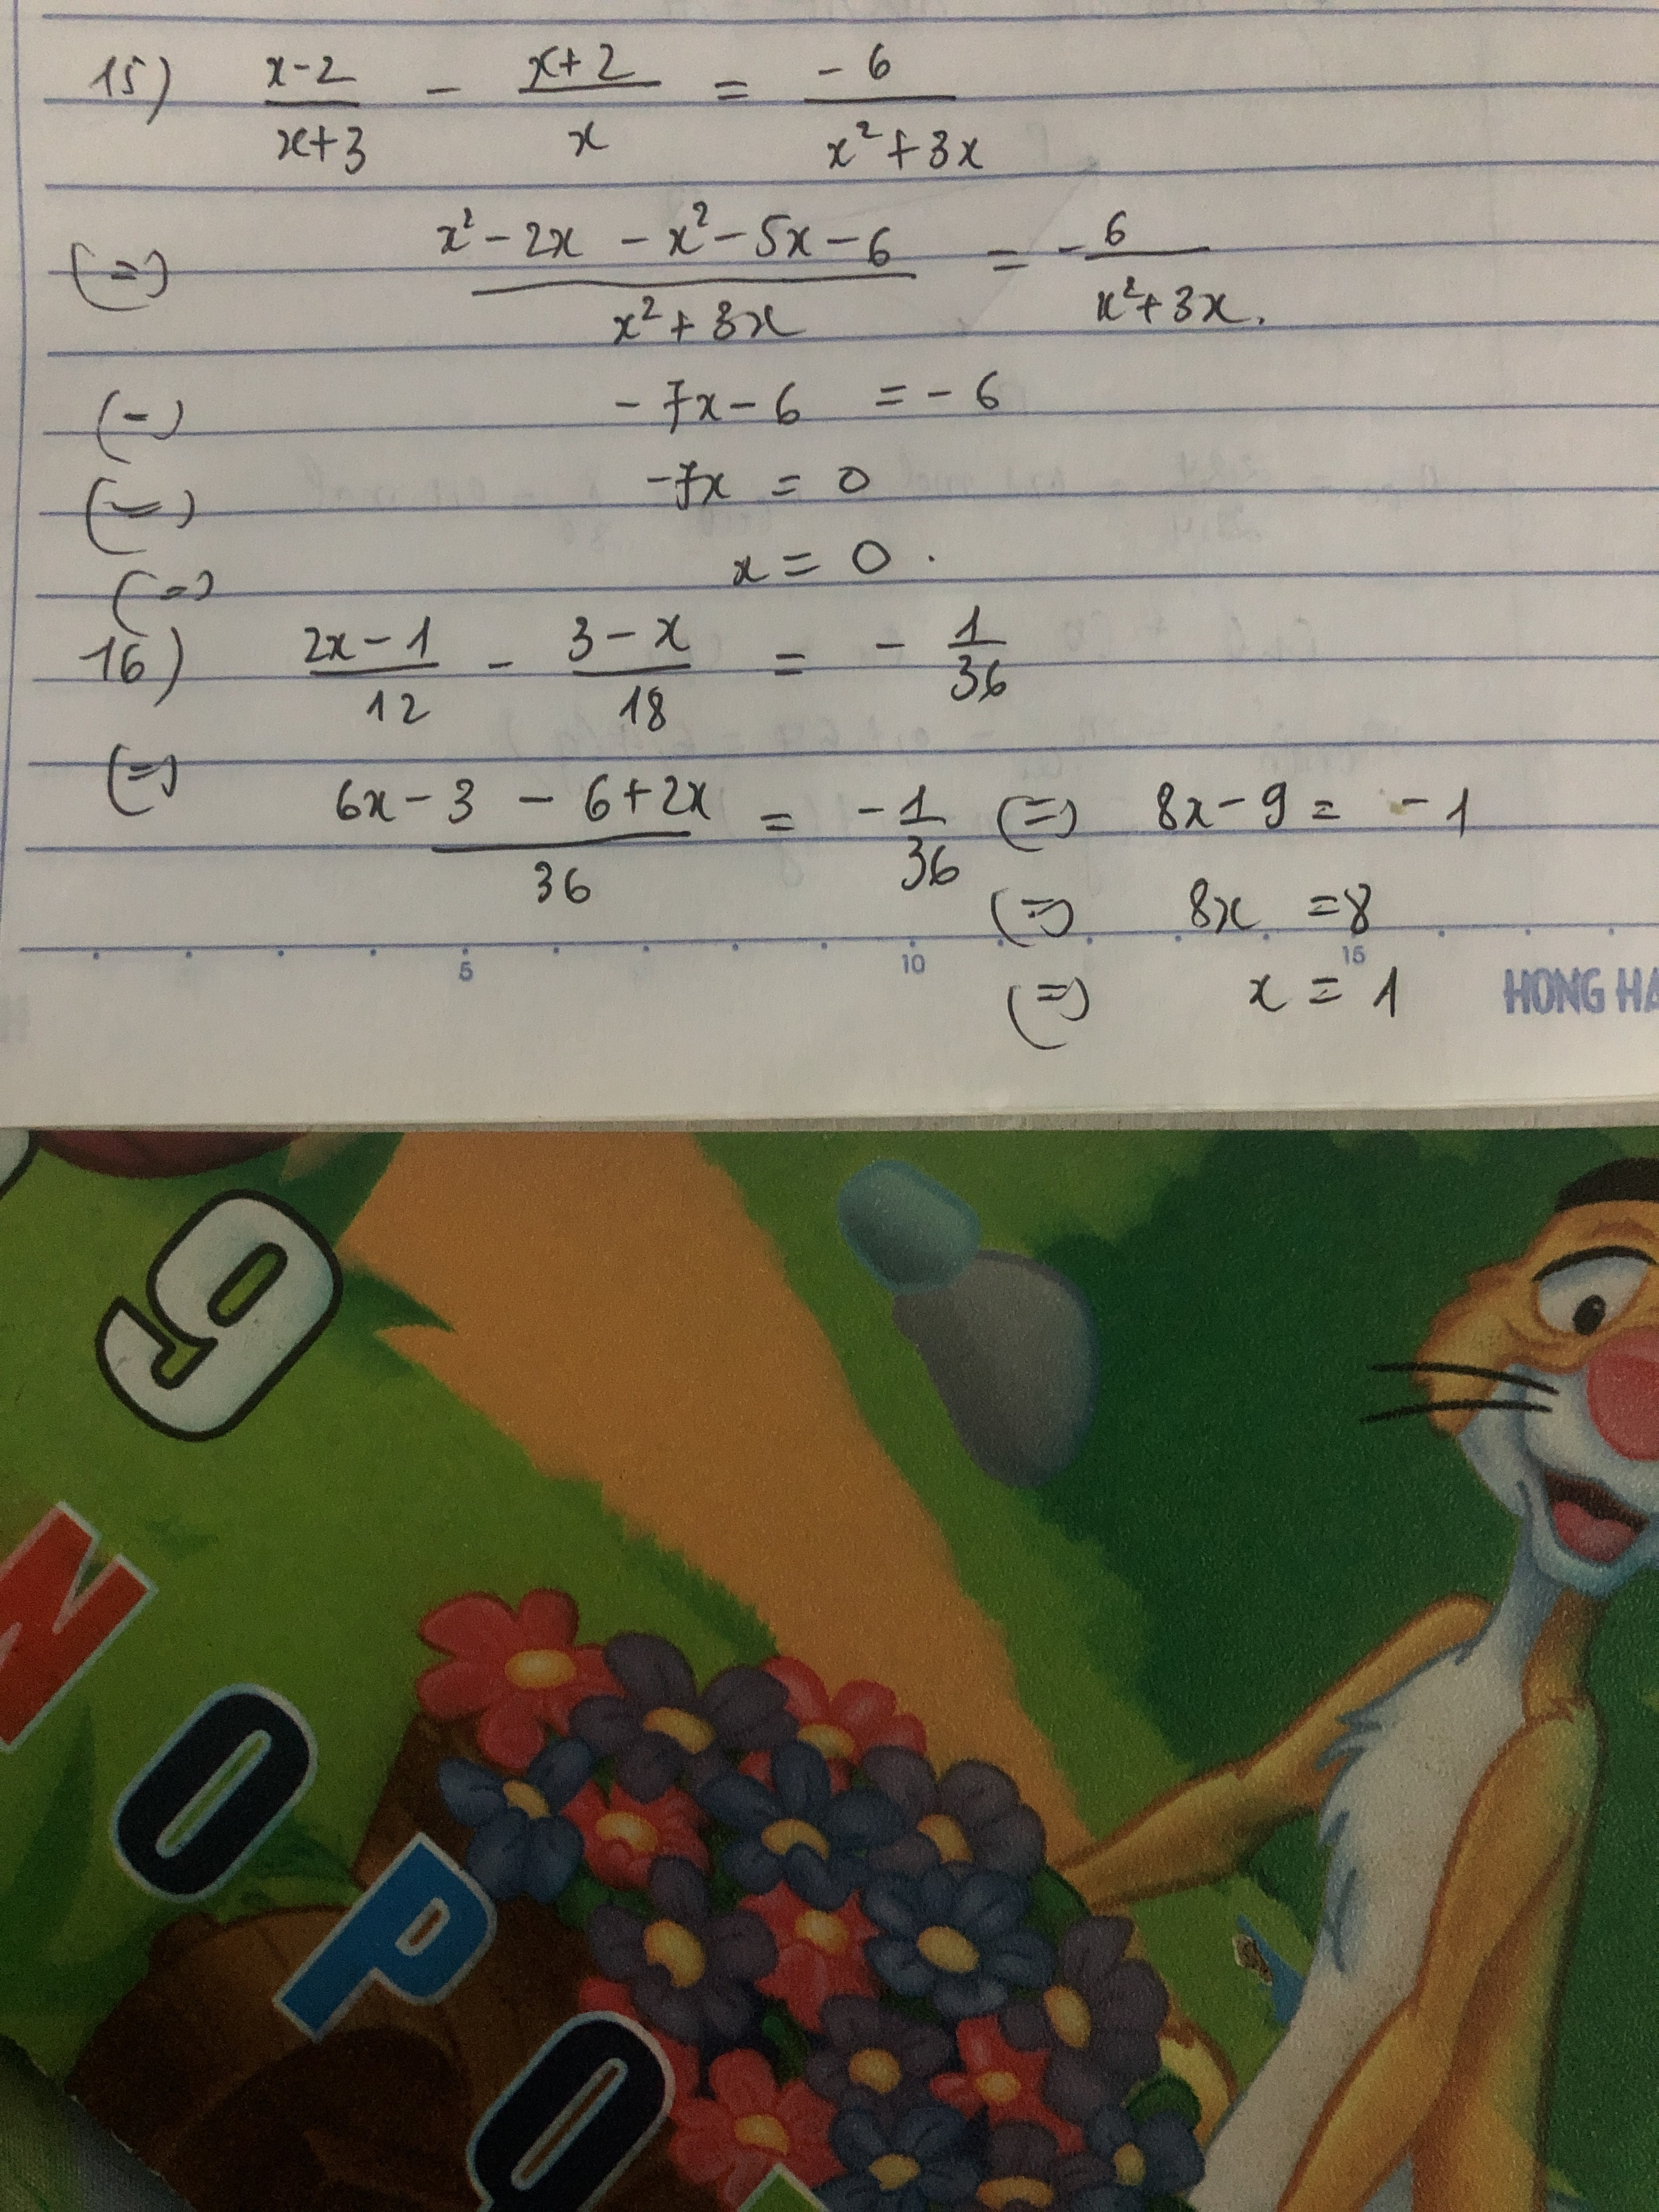 15) \frac{x-2}{x+3} - \frac{x+2}{x} = \frac{-6}{x^2+3x}
(=) \frac{x^2-2x-x^2-5x-6}{x^2+3x} = -\frac{6}{x^2+3x}.
(=) -7x-6 = -6
(=) -7x = 0
(=) x = 0.
16) \frac{2x-1}{12} - \frac{3-x}{18} = -\frac{1}{36}
(=) \frac{6x-3-6+2x}{36} = -\frac{1}{36} (=) 8x-9 = -1
(=) 8x = 8
5 10 15
(=) x = 1
HONG HA
9
N
O
P
Q